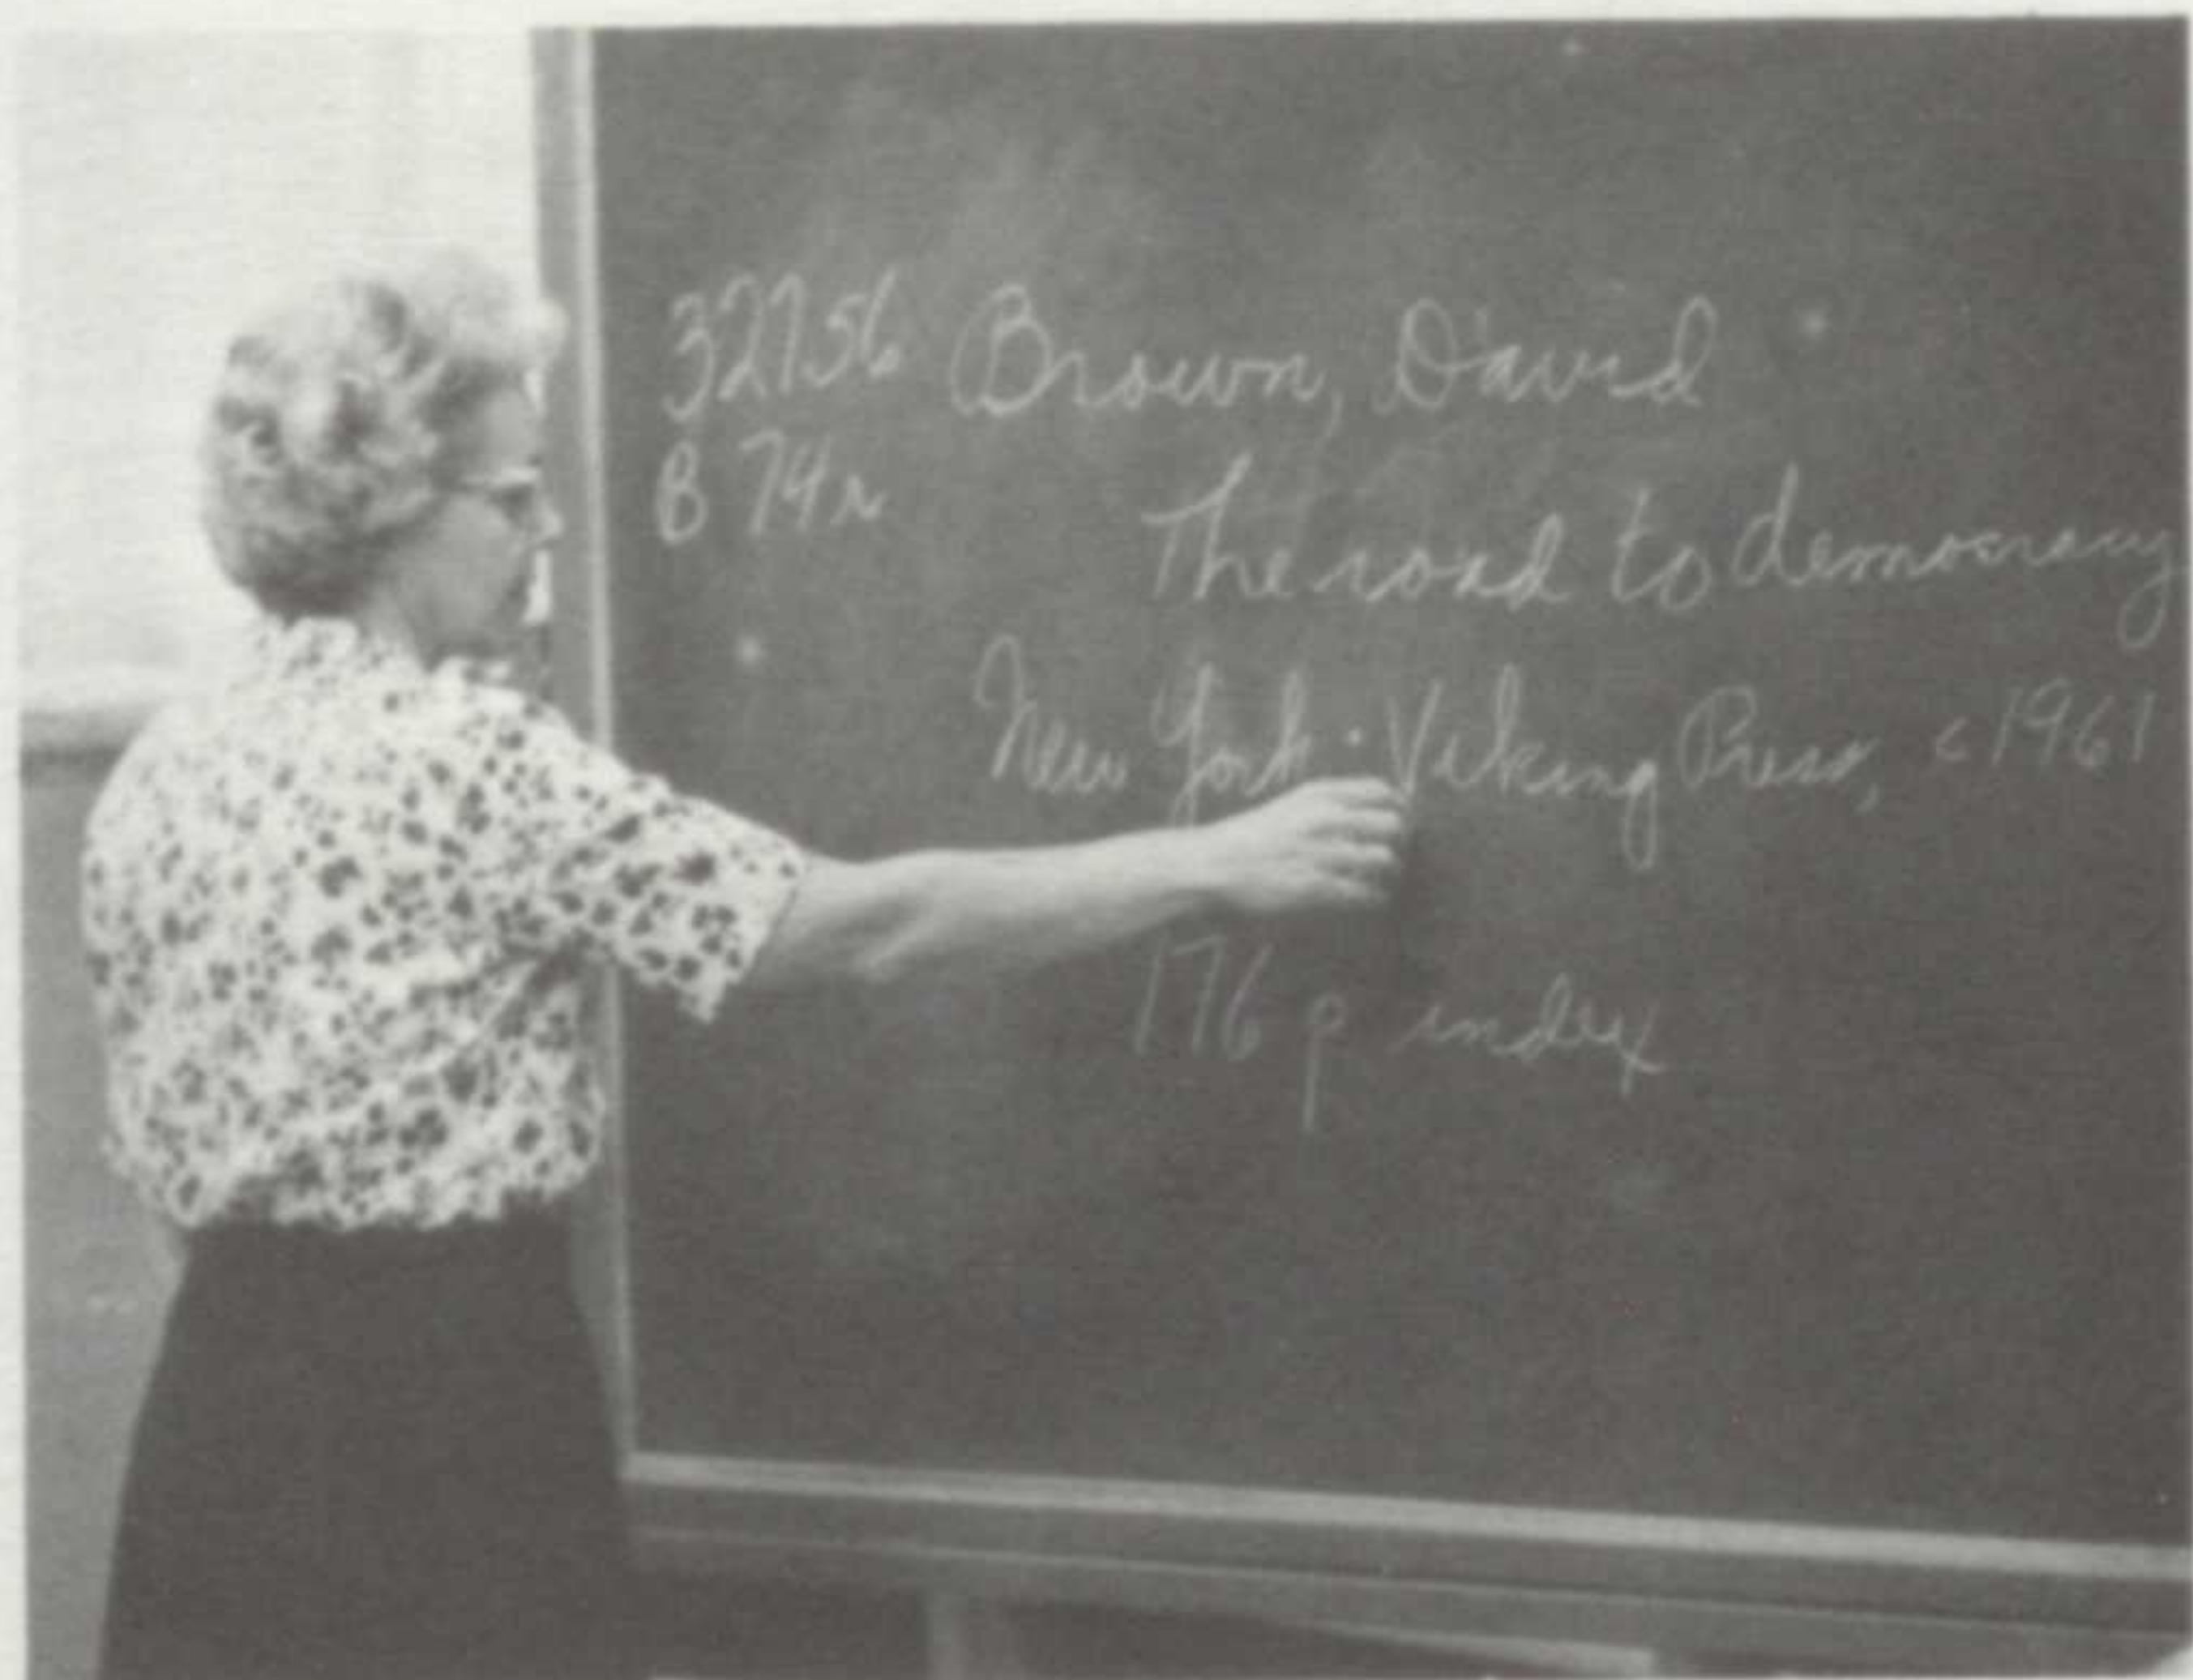 32756 Brown, David
B 74r The road to democracy
New York: Viking Press, c1961
176 p index